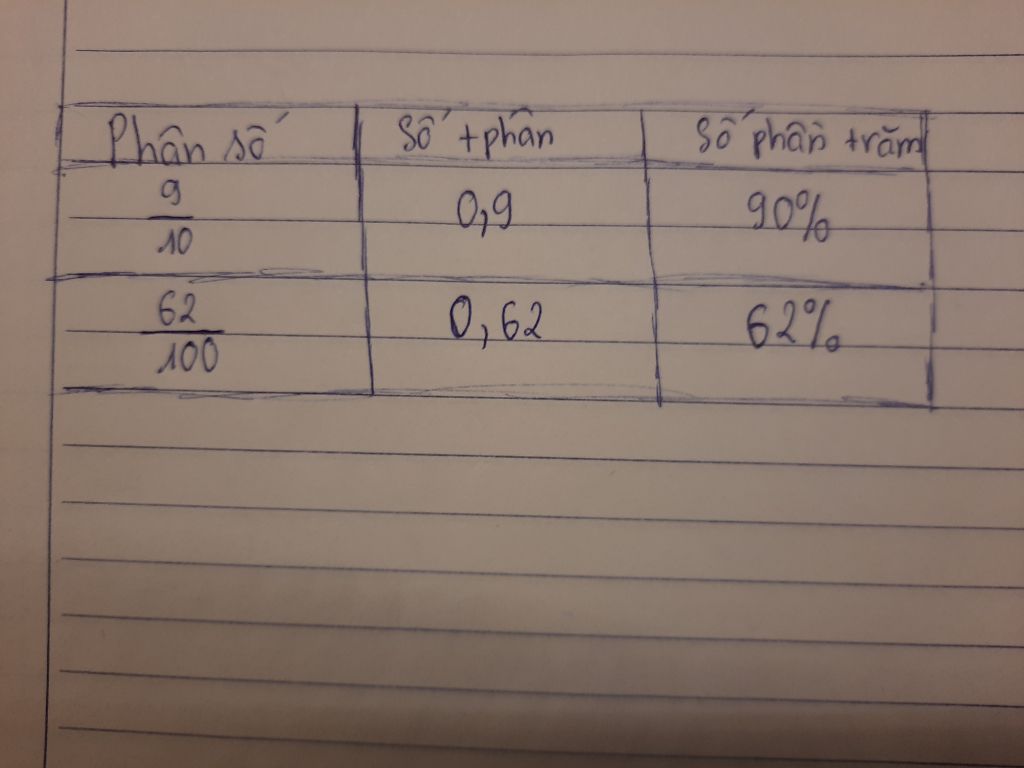 Phân số Số tphân Số phần trăm
9/10 0,9 90%
62/100 0,62 62%